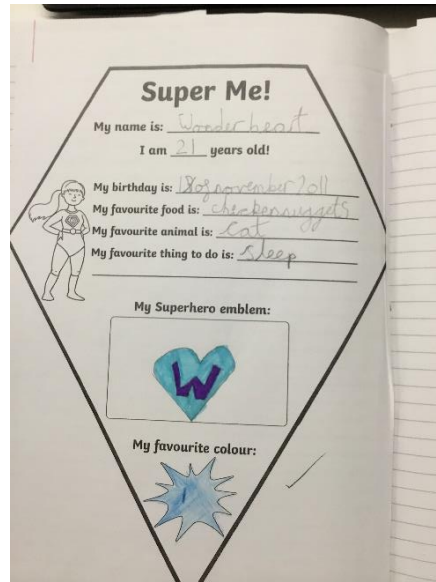 Super Me!
My name is: Wonderheart
I am 21 years old!
My birthday is: 18 of november 2011
My favourite food is: chickennuggets
My favourite animal is: Cat
My favourite thing to do is: sleep
My Superhero emblem:
W
My favourite colour: